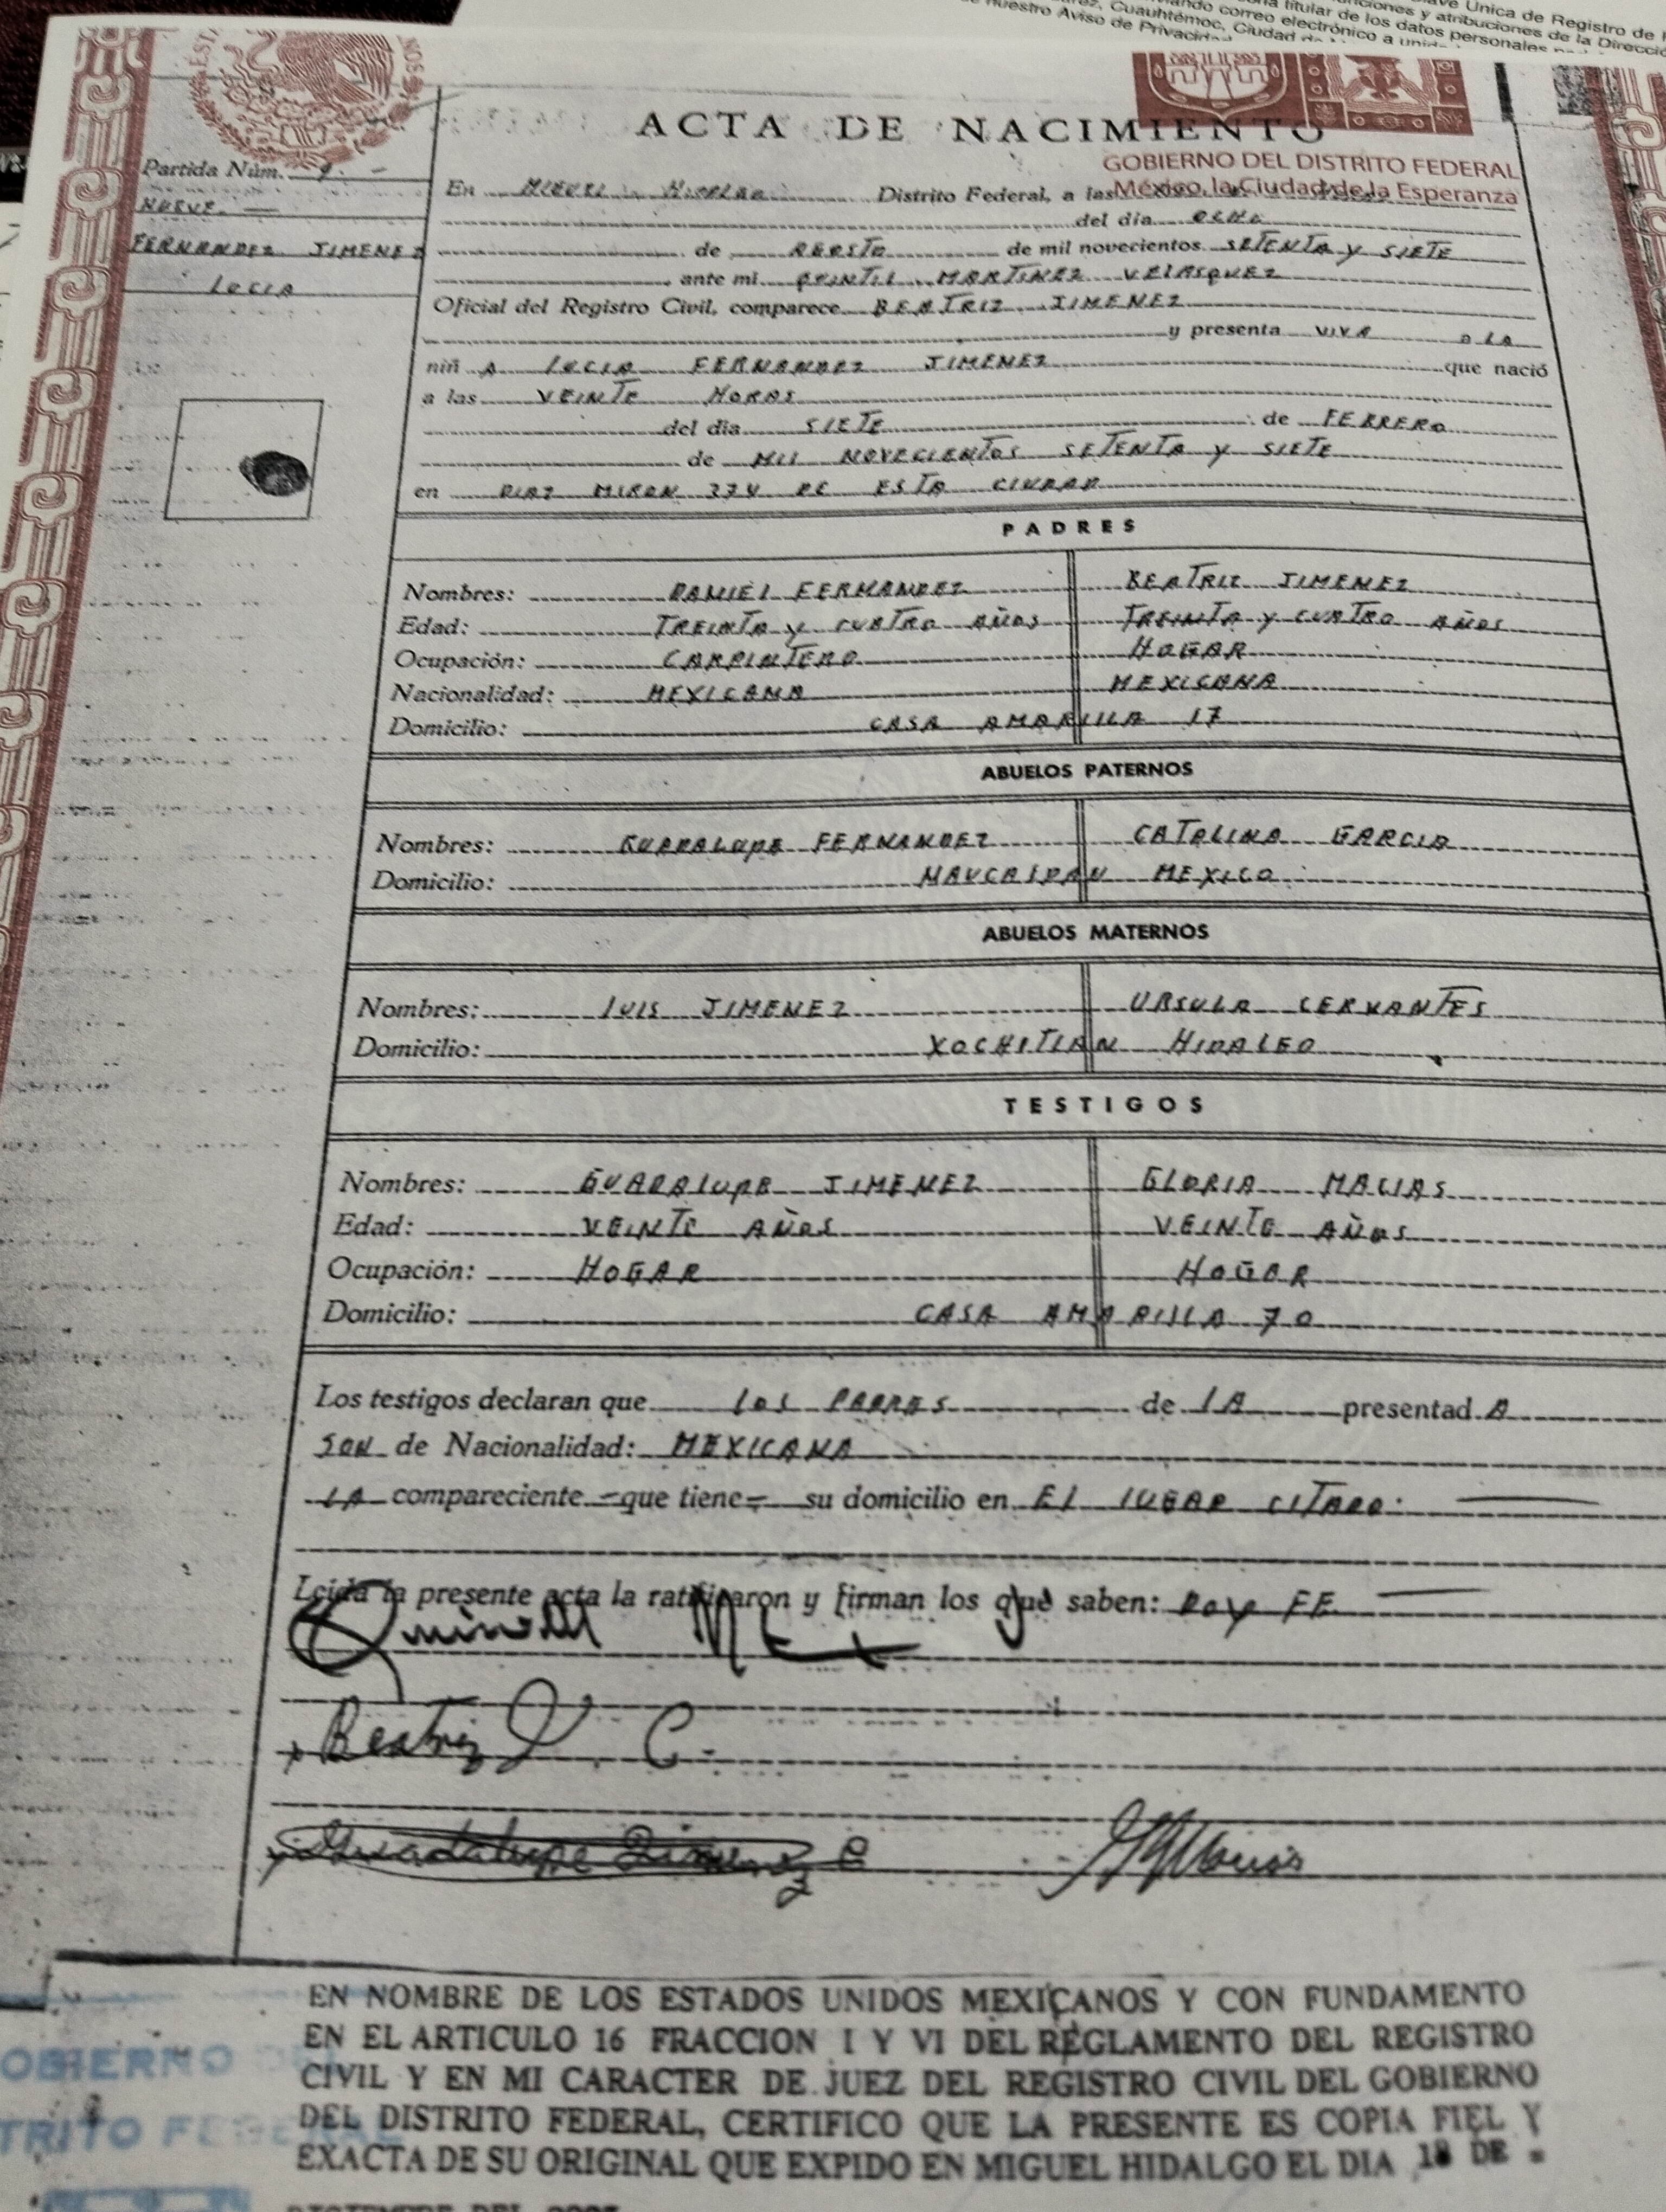 Clave Única de Registro de
funciones y atribuciones de la Direcció
titular de los datos personales
Cuauhtémoc, Ciudad de
correo electrónico a
nuestro Aviso de Privacidad
ACTA DE NACIMIENTO
GOBIERNO DEL DISTRITO FEDERAL
México, la Ciudad de la Esperanza
Partida Núm. 9. —
NUEVE. —
FERNANDEZ JIMENEZ
LUCIA
En MIGUEL HIDALGO Distrito Federal, a las
del día OCHO
de AGOSTO de mil novecientos SETENTA y SIETE
ante mi QUINTIL MARTINEZ VELASQUEZ
Oficial del Registro Civil, comparece BEATRIZ JIMENEZ
y presenta VIVA A LA
niñ A LUCIA FERNANDEZ JIMENEZ que nació
a las VEINTE HORAS
del día SIETE de FEBRERO
de MIL NOVECIENTOS SETENTA y SIETE
en DIAZ MIRON 374 DE ESTA CIUDAD
PADRES
Nombres: DANIEL FERNANDEZ BEATRIZ JIMENEZ
Edad: TREINTA y CUATRO AÑOS TREINTA y CUATRO AÑOS
Ocupación: CARPINTERO HOGAR
Nacionalidad: MEXICANA MEXICANA
Domicilio: CASA AMARILLA 17
ABUELOS PATERNOS
Nombres: GUADALUPE FERNANDEZ CATALINA GARCIA
Domicilio: NAUCALPAN MEXICO
ABUELOS MATERNOS
Nombres: LUIS JIMENEZ URSULA CERVANTES
Domicilio: XOCHITLAN HIDALGO
TESTIGOS
Nombres: GUADALUPE JIMENEZ GLORIA MACIAS
Edad: VEINTE AÑOS VEINTE AÑOS
Ocupación: HOGAR HOGAR
Domicilio: CASA AMARILLA 70
Los testigos declaran que LOS PADRES de LA presentad A
SON de Nacionalidad: MEXICANA
LA compareciente que tiene su domicilio en EL LUGAR CITADO.
Leida la presente acta la ratificaron y firman los que saben: DOY FE
Beatriz J. C.
Guadalupe Jimenez C
EN NOMBRE DE LOS ESTADOS UNIDOS MEXICANOS Y CON FUNDAMENTO
EN EL ARTICULO 16 FRACCION I Y VI DEL REGLAMENTO DEL REGISTRO
CIVIL Y EN MI CARACTER DE JUEZ DEL REGISTRO CIVIL DEL GOBIERNO
DEL DISTRITO FEDERAL, CERTIFICO QUE LA PRESENTE ES COPIA FIEL Y
EXACTA DE SU ORIGINAL QUE EXPIDO EN MIGUEL HIDALGO EL DIA 18 DE
OBIERNO
TRITO FEDERAL